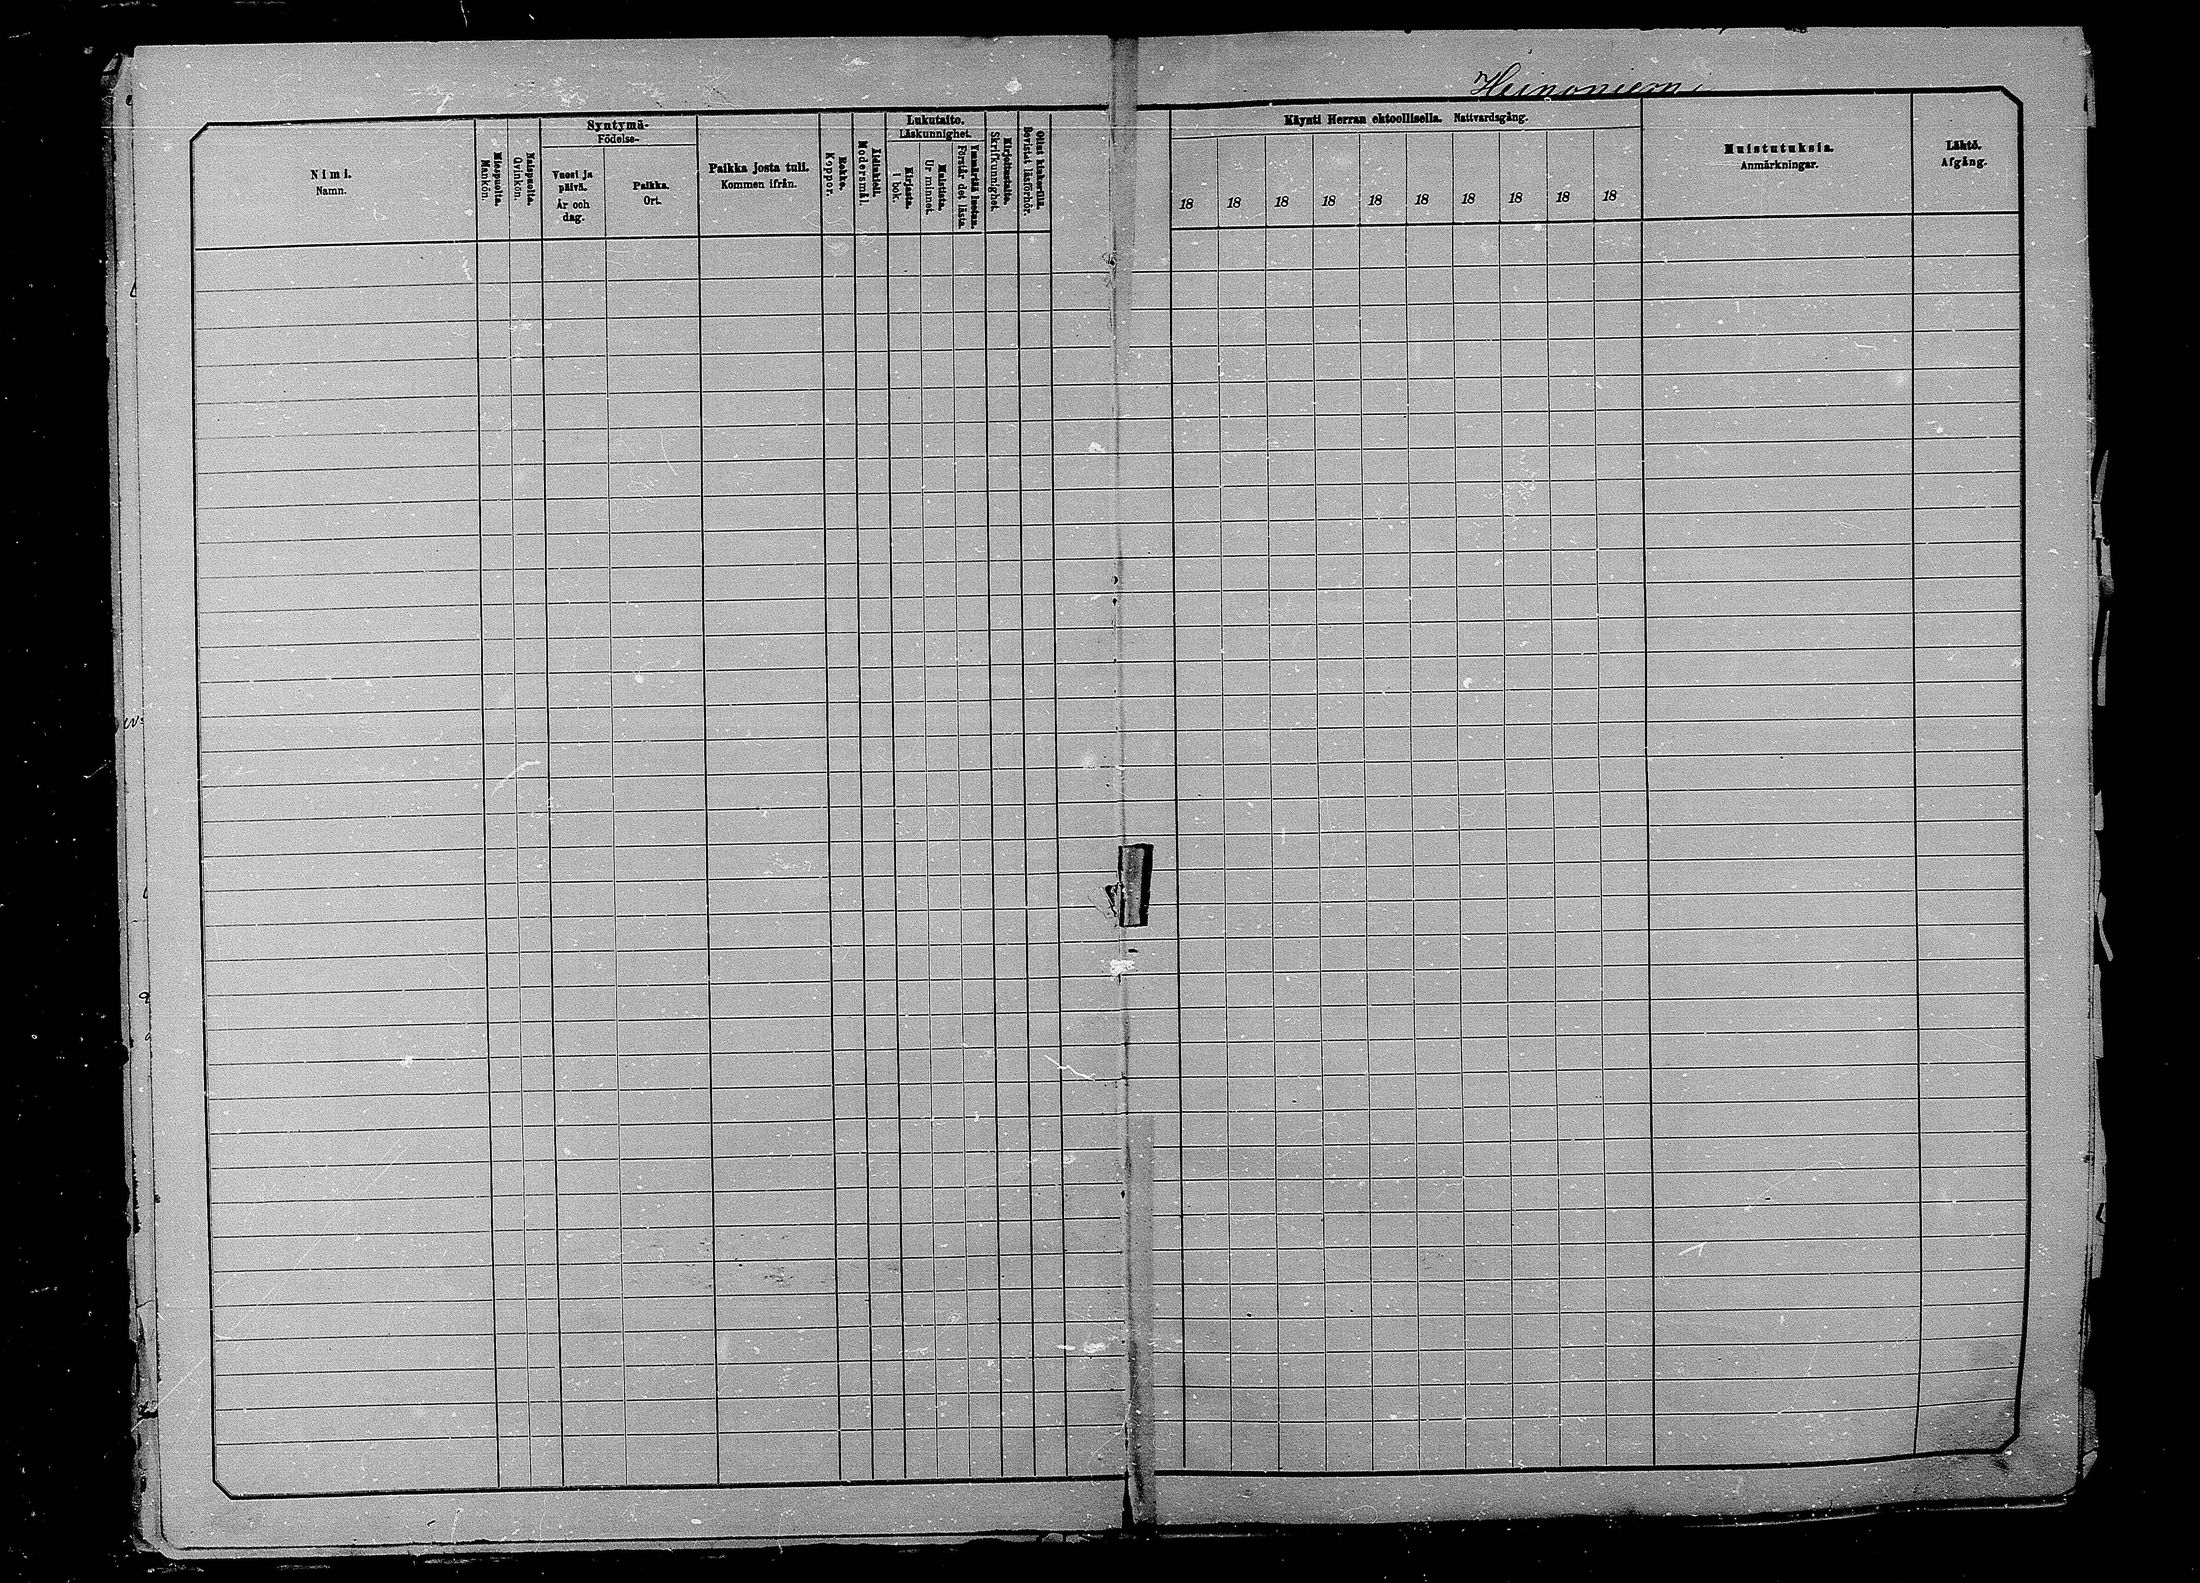 Heinoniemi
Nimi.
Namn.
Miespuolta.
Mankön.
Naispuolta.
Qvinkön.
Syntymä-
Födelse-
Vuosi ja
päivä.
År och
dag.
Paikka.
Ort.
Paikka josta tuli.
Kommen ifrån.
Rokko.
Koppor.
Äidinkieli.
Modersmål.
Lukutaito.
Läskunnighet.
Kirjasta.
I bok.
Muistista.
Ur minnet.
Ymmärtää luetun.
Förstår det lästa.
Kirjoitustaito.
Skrifkunnighet.
Ollut kinkerillä.
Bevistat läsförhör.
Käynti Herran ehtoollisella. Nattvardsgång.
18 18 18 18 18 18 18 18 18 18
Muistutuksia.
Anmärkningar.
Lähtö.
Afgång.